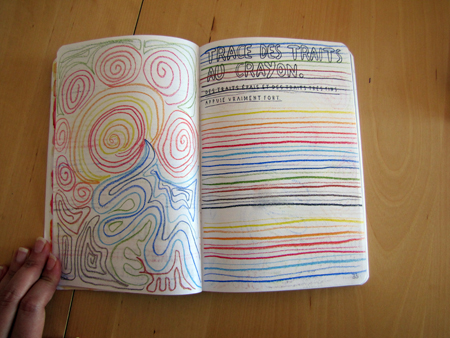 TRACE DES TRAITS
AU CRAYON.
DES TRAITS ÉPAIS ET DES TRAITS TRÈS FINS
APPUIE VRAIMENT FORT.